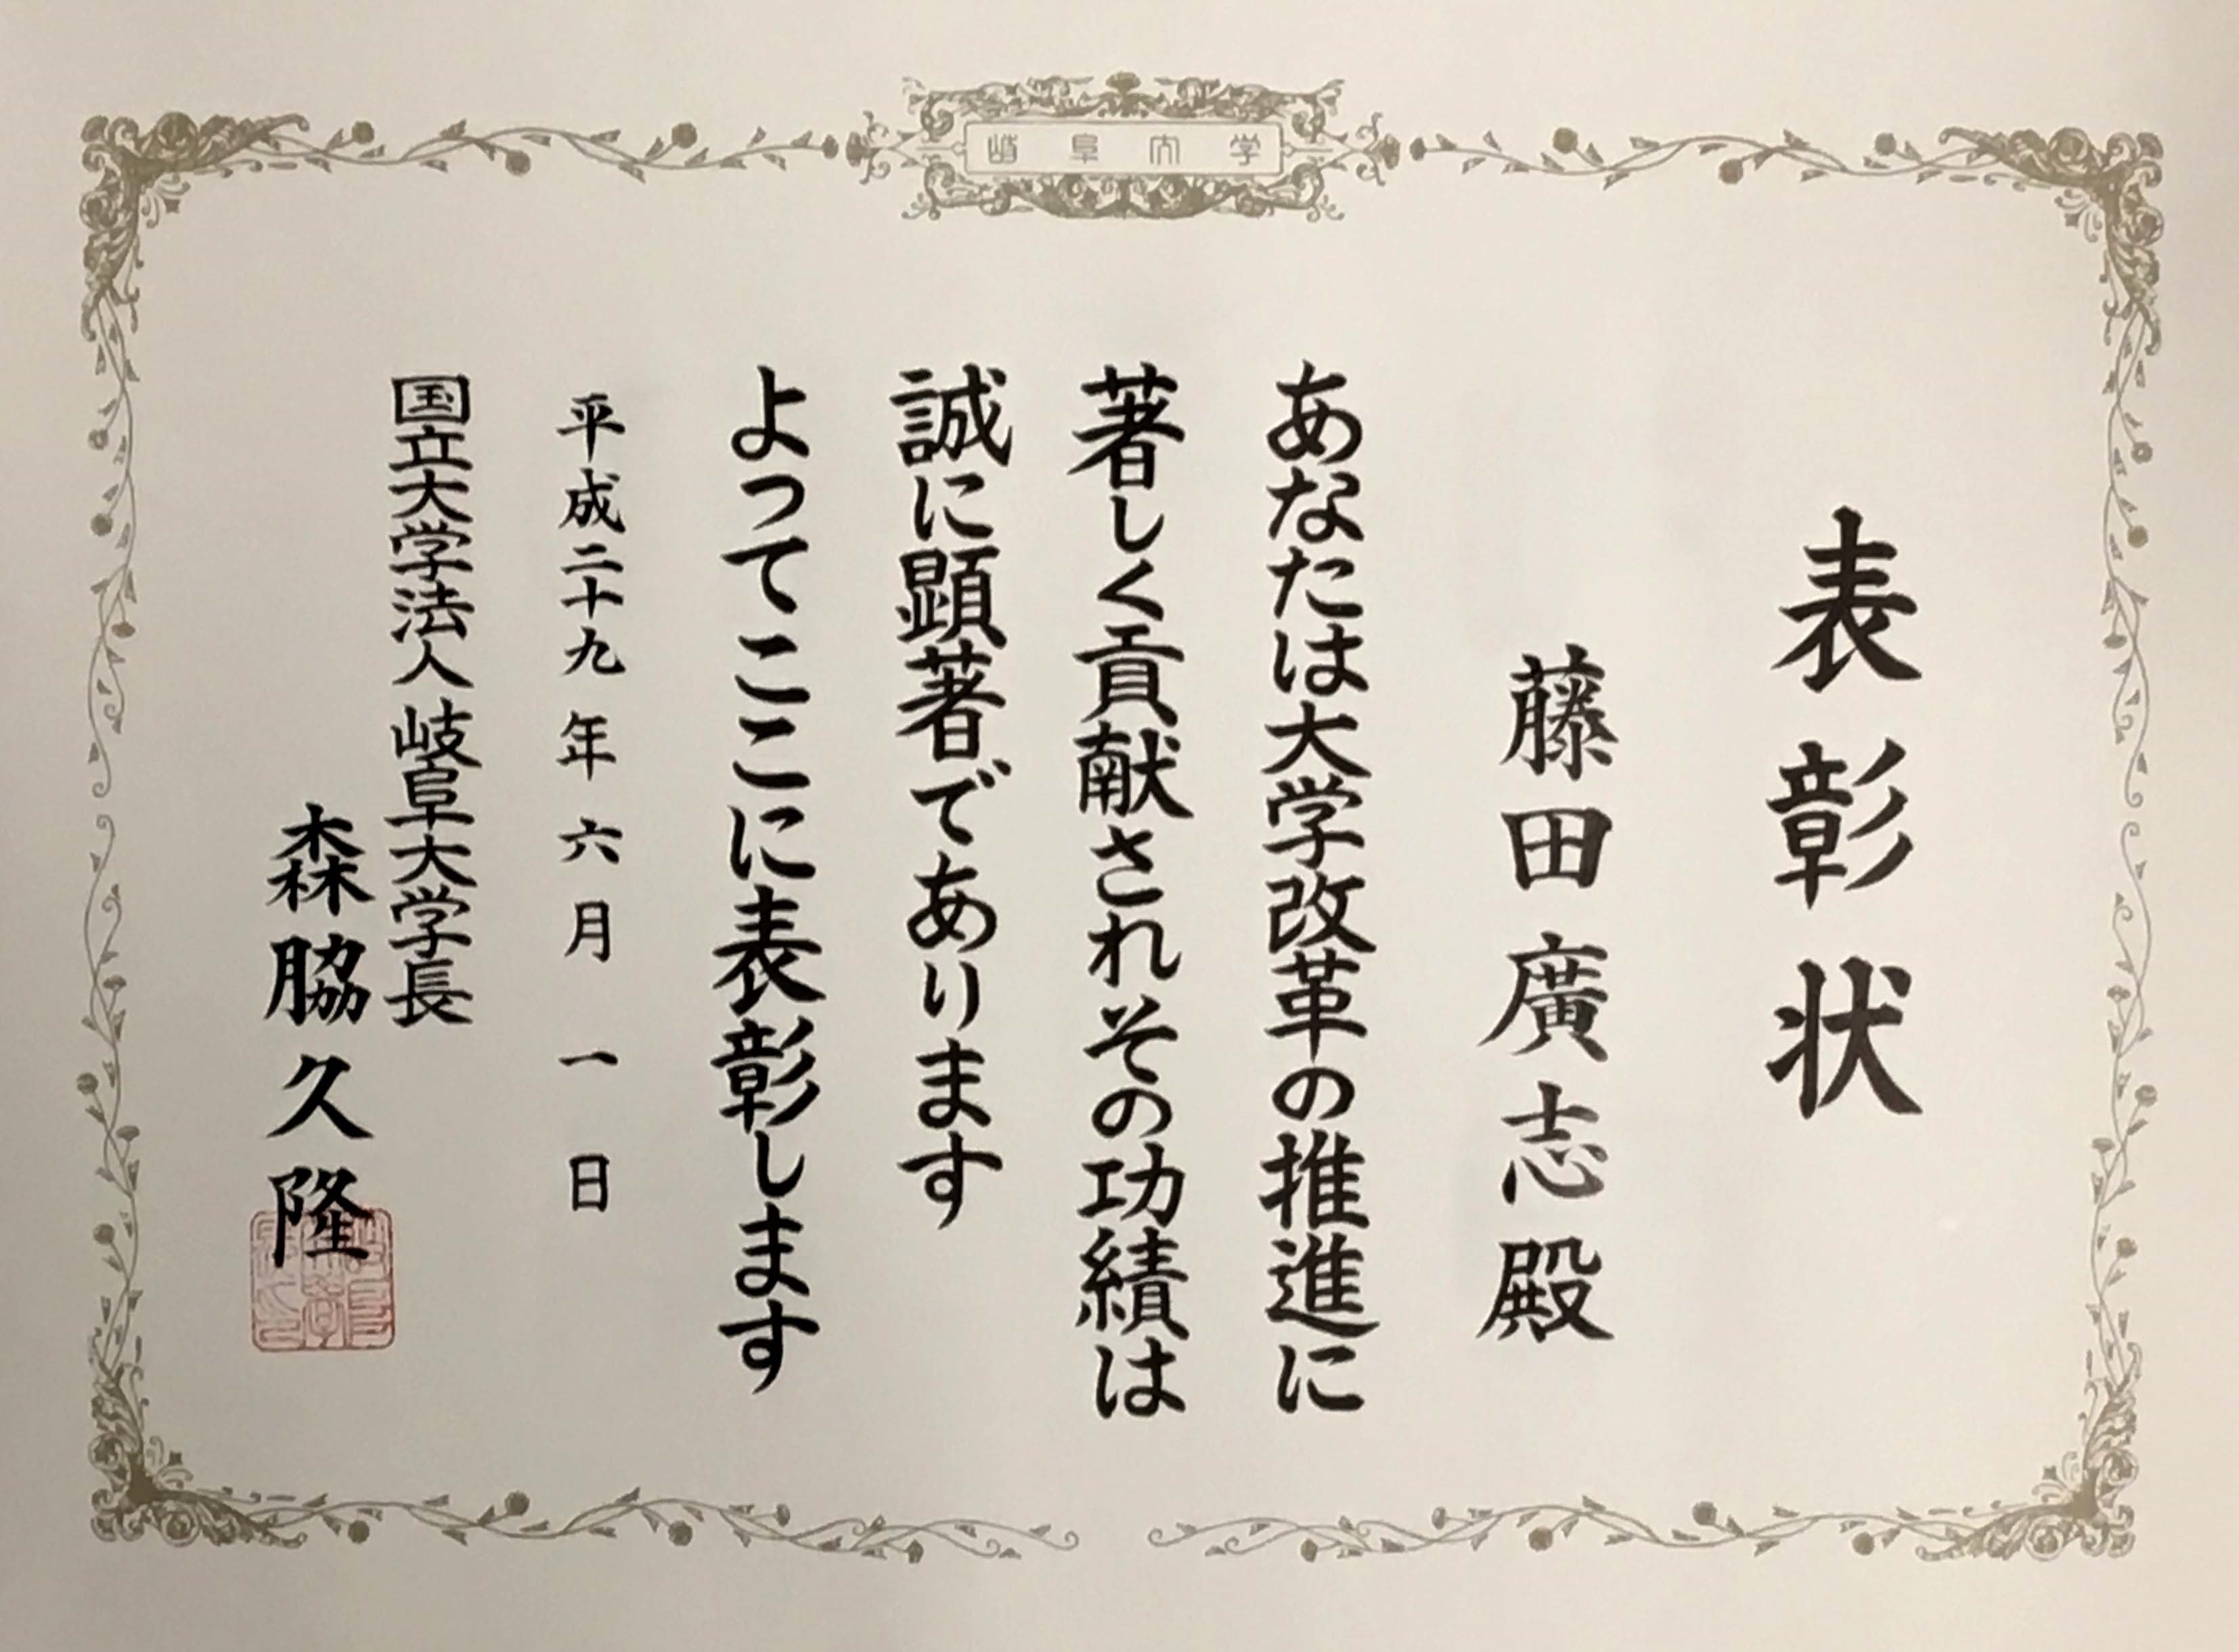 岐阜大学
表彰状
藤田廣志殿
あなたは大学改革の推進に
著しく貢献されその功績は
誠に顕著であります
よってここに表彰します
平成二十九年六月一日
国立大学法人岐阜大学長
森脇久隆